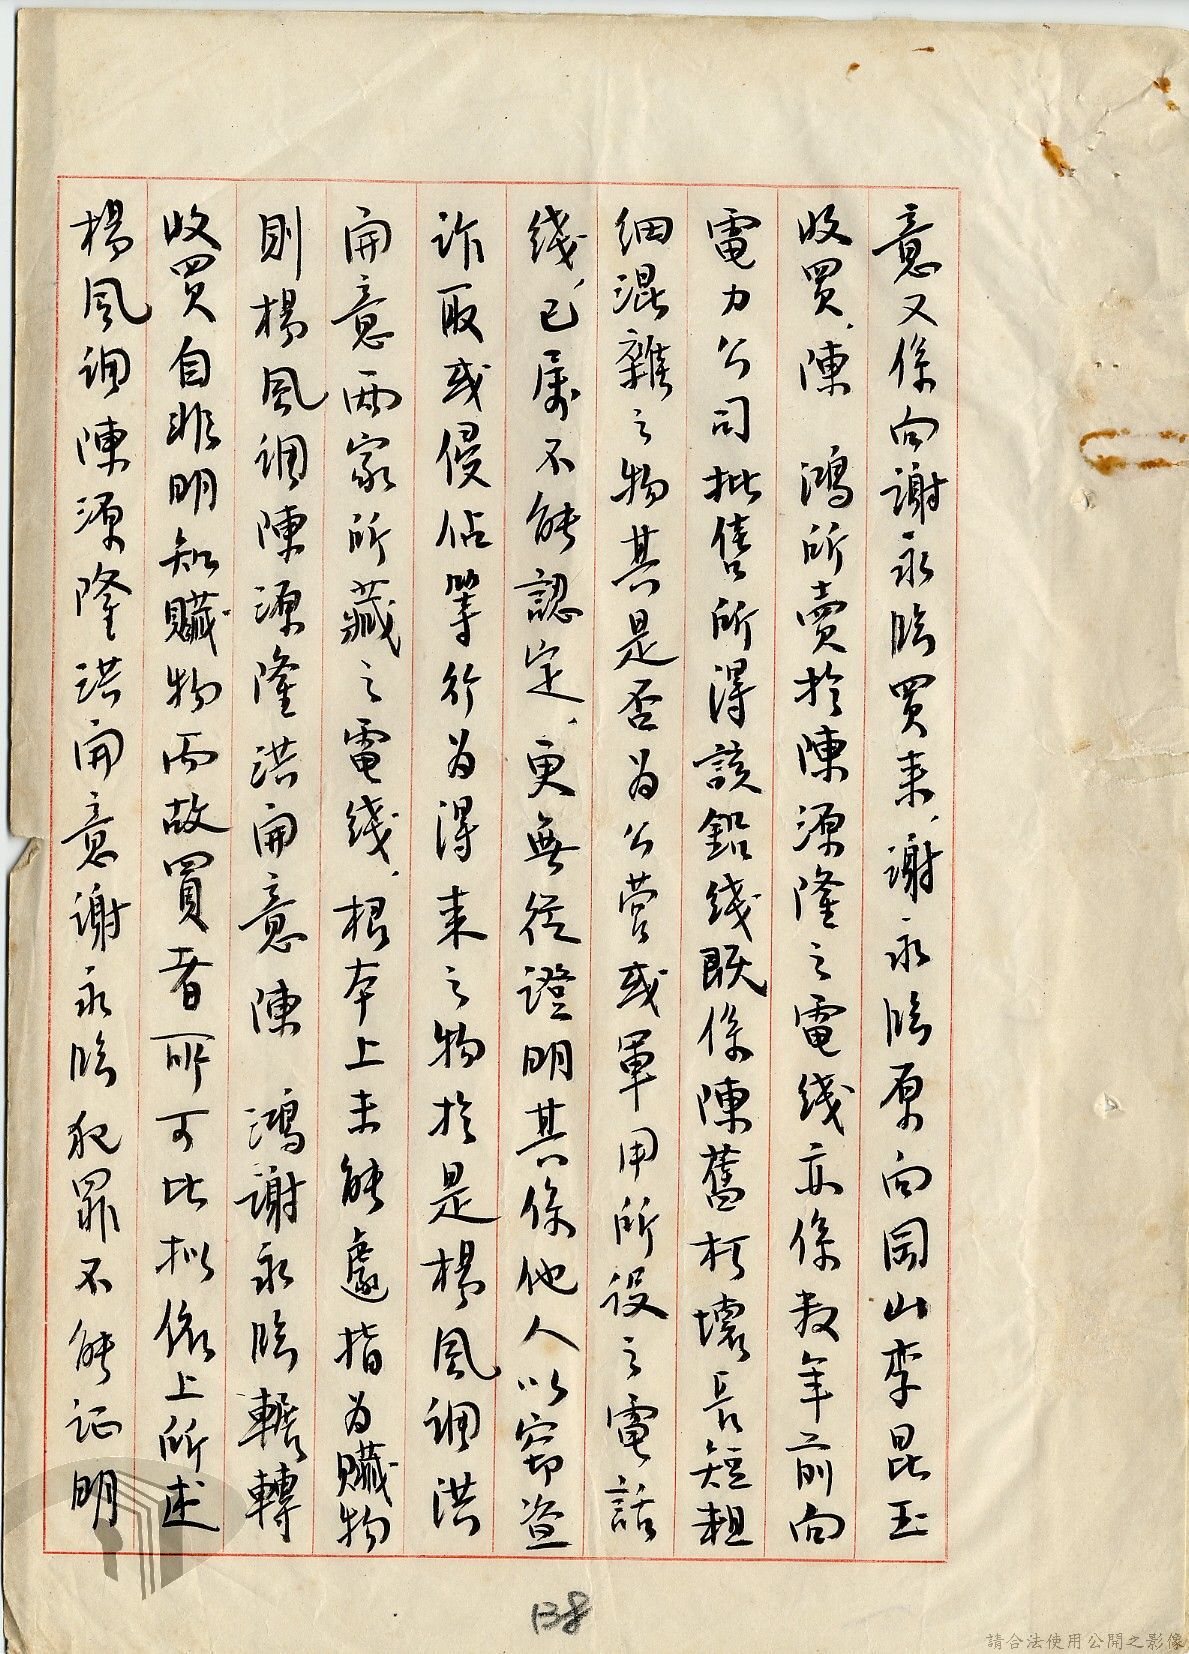 意又係向謝永臨買来、謝永臨原向岡山李昆玉
收買、陳　鴻所賣於陳源隆之電綫亦係数年前向
電力公司批售所得該鉛綫既係陳舊朽壞長短粗
细混雜之物其是否為公营或軍用所设之電話
綫、已属不能認定、更無從證明其係他人以窃盗
诈取或侵佔等行为得来之物於是楊風调洪
開意两家所藏之電綫、根本上未能遽指为贓物
則楊風调陳源隆洪開意陳　鴻謝永臨輾轉
收買自非明知贓物而故買者所可比拟依上所述
楊風调陳源隆洪開意谢永臨犯罪不能证明
138
請合法使用公開之影像